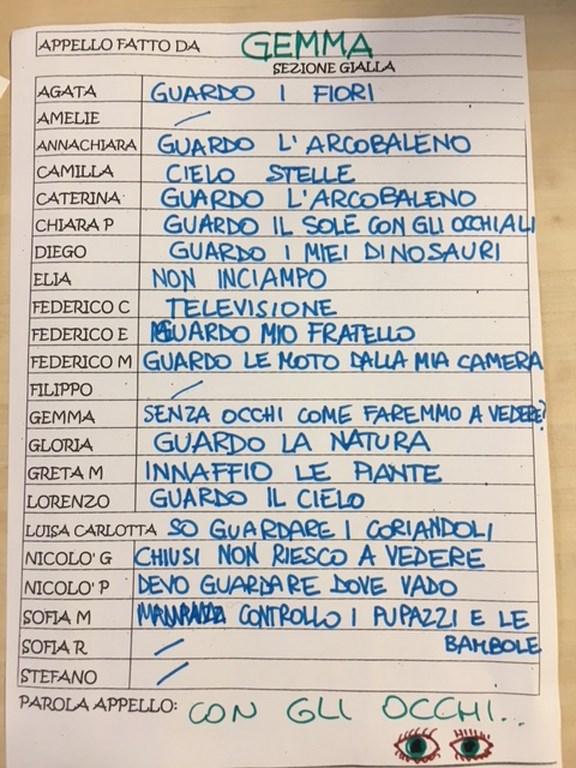 APPELLO FATTO DA GEMMA
SEZIONE GIALLA
AGATA GUARDO I FIORI
AMELIE /
ANNACHIARA GUARDO L'ARCOBALENO
CAMILLA CIELO STELLE
CATERINA GUARDO L'ARCOBALENO
CHIARA P GUARDO IL SOLE CON GLI OCCHIALI
DIEGO GUARDO I MIEI DINOSAURI
ELIA NON INCIAMPO
FEDERICO C TELEVISIONE
FEDERICO E GUARDO MIO FRATELLO
FEDERICO M GUARDO LE MOTO DALLA MIA CAMERA
FILIPPO /
GEMMA SENZA OCCHI COME FAREMMO A VEDERE?
GLORIA GUARDO LA NATURA
GRETA M INNAFFIO LE PIANTE
LORENZO GUARDO IL CIELO
LUISA CARLOTTA SO GUARDARE I CORIANDOLI
NICOLO' G CHIUSI NON RIESCO A VEDERE
NICOLO' P DEVO GUARDARE DOVE VADO
SOFIA M CONTROLLO I PUPAZZI E LE
BAMBOLE
SOFIA R /
STEFANO /
PAROLA APPELLO: CON GLI OCCHI...